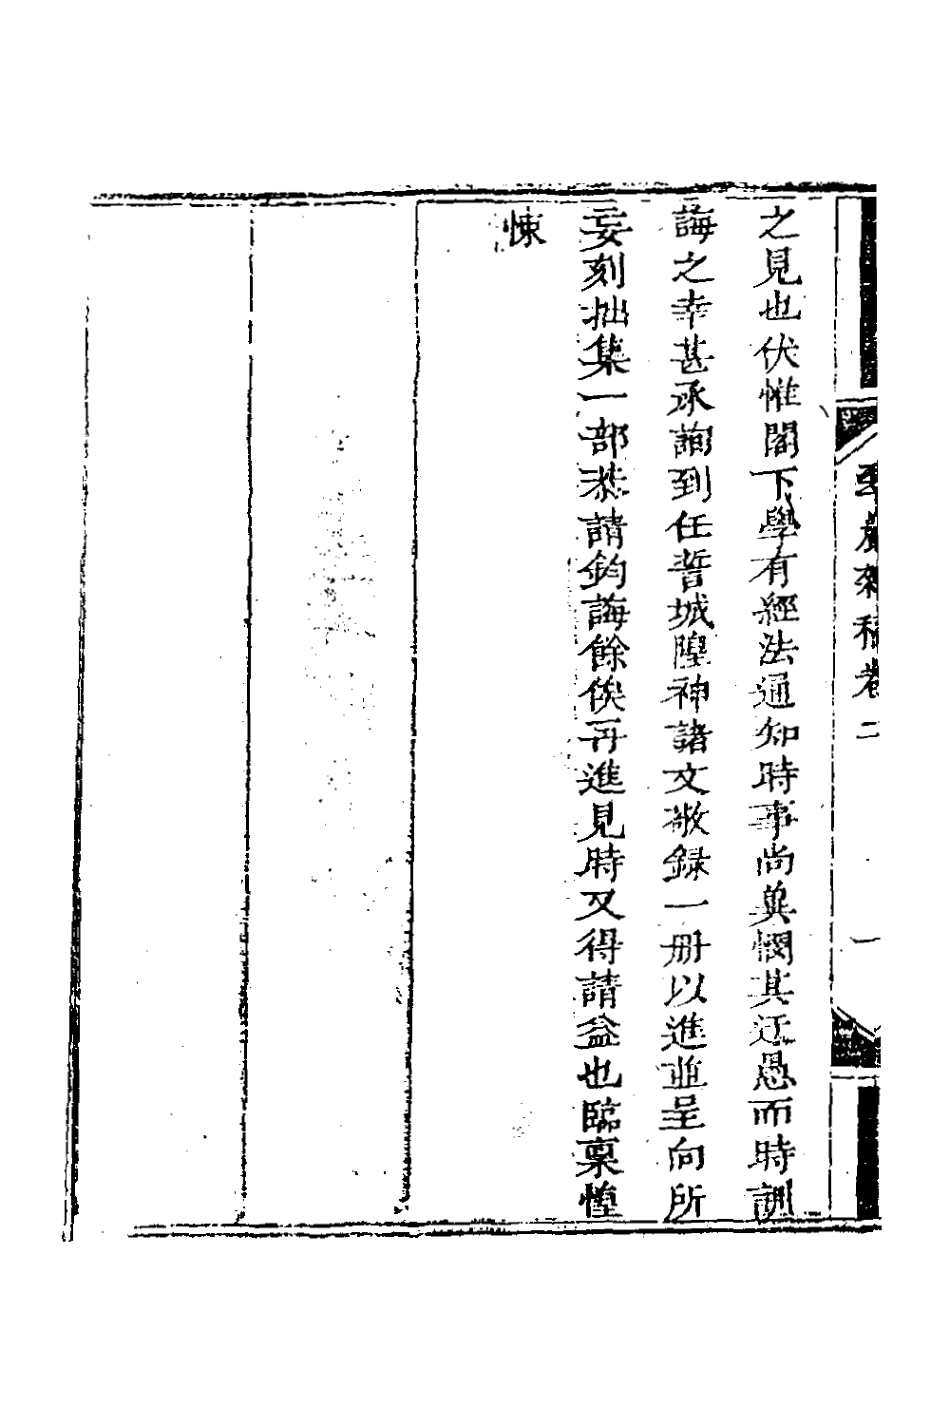 之見也伏惟閣下學有經法通知時事尚兾憫其迂愚而時訓
誨之幸甚承詢到任誓城隍神諸文敬録一册以進並呈向所
妄刻拙集一部恭請鈞誨餘俟再進見時又得請益也臨稟惶
悚
雜稿卷二
一